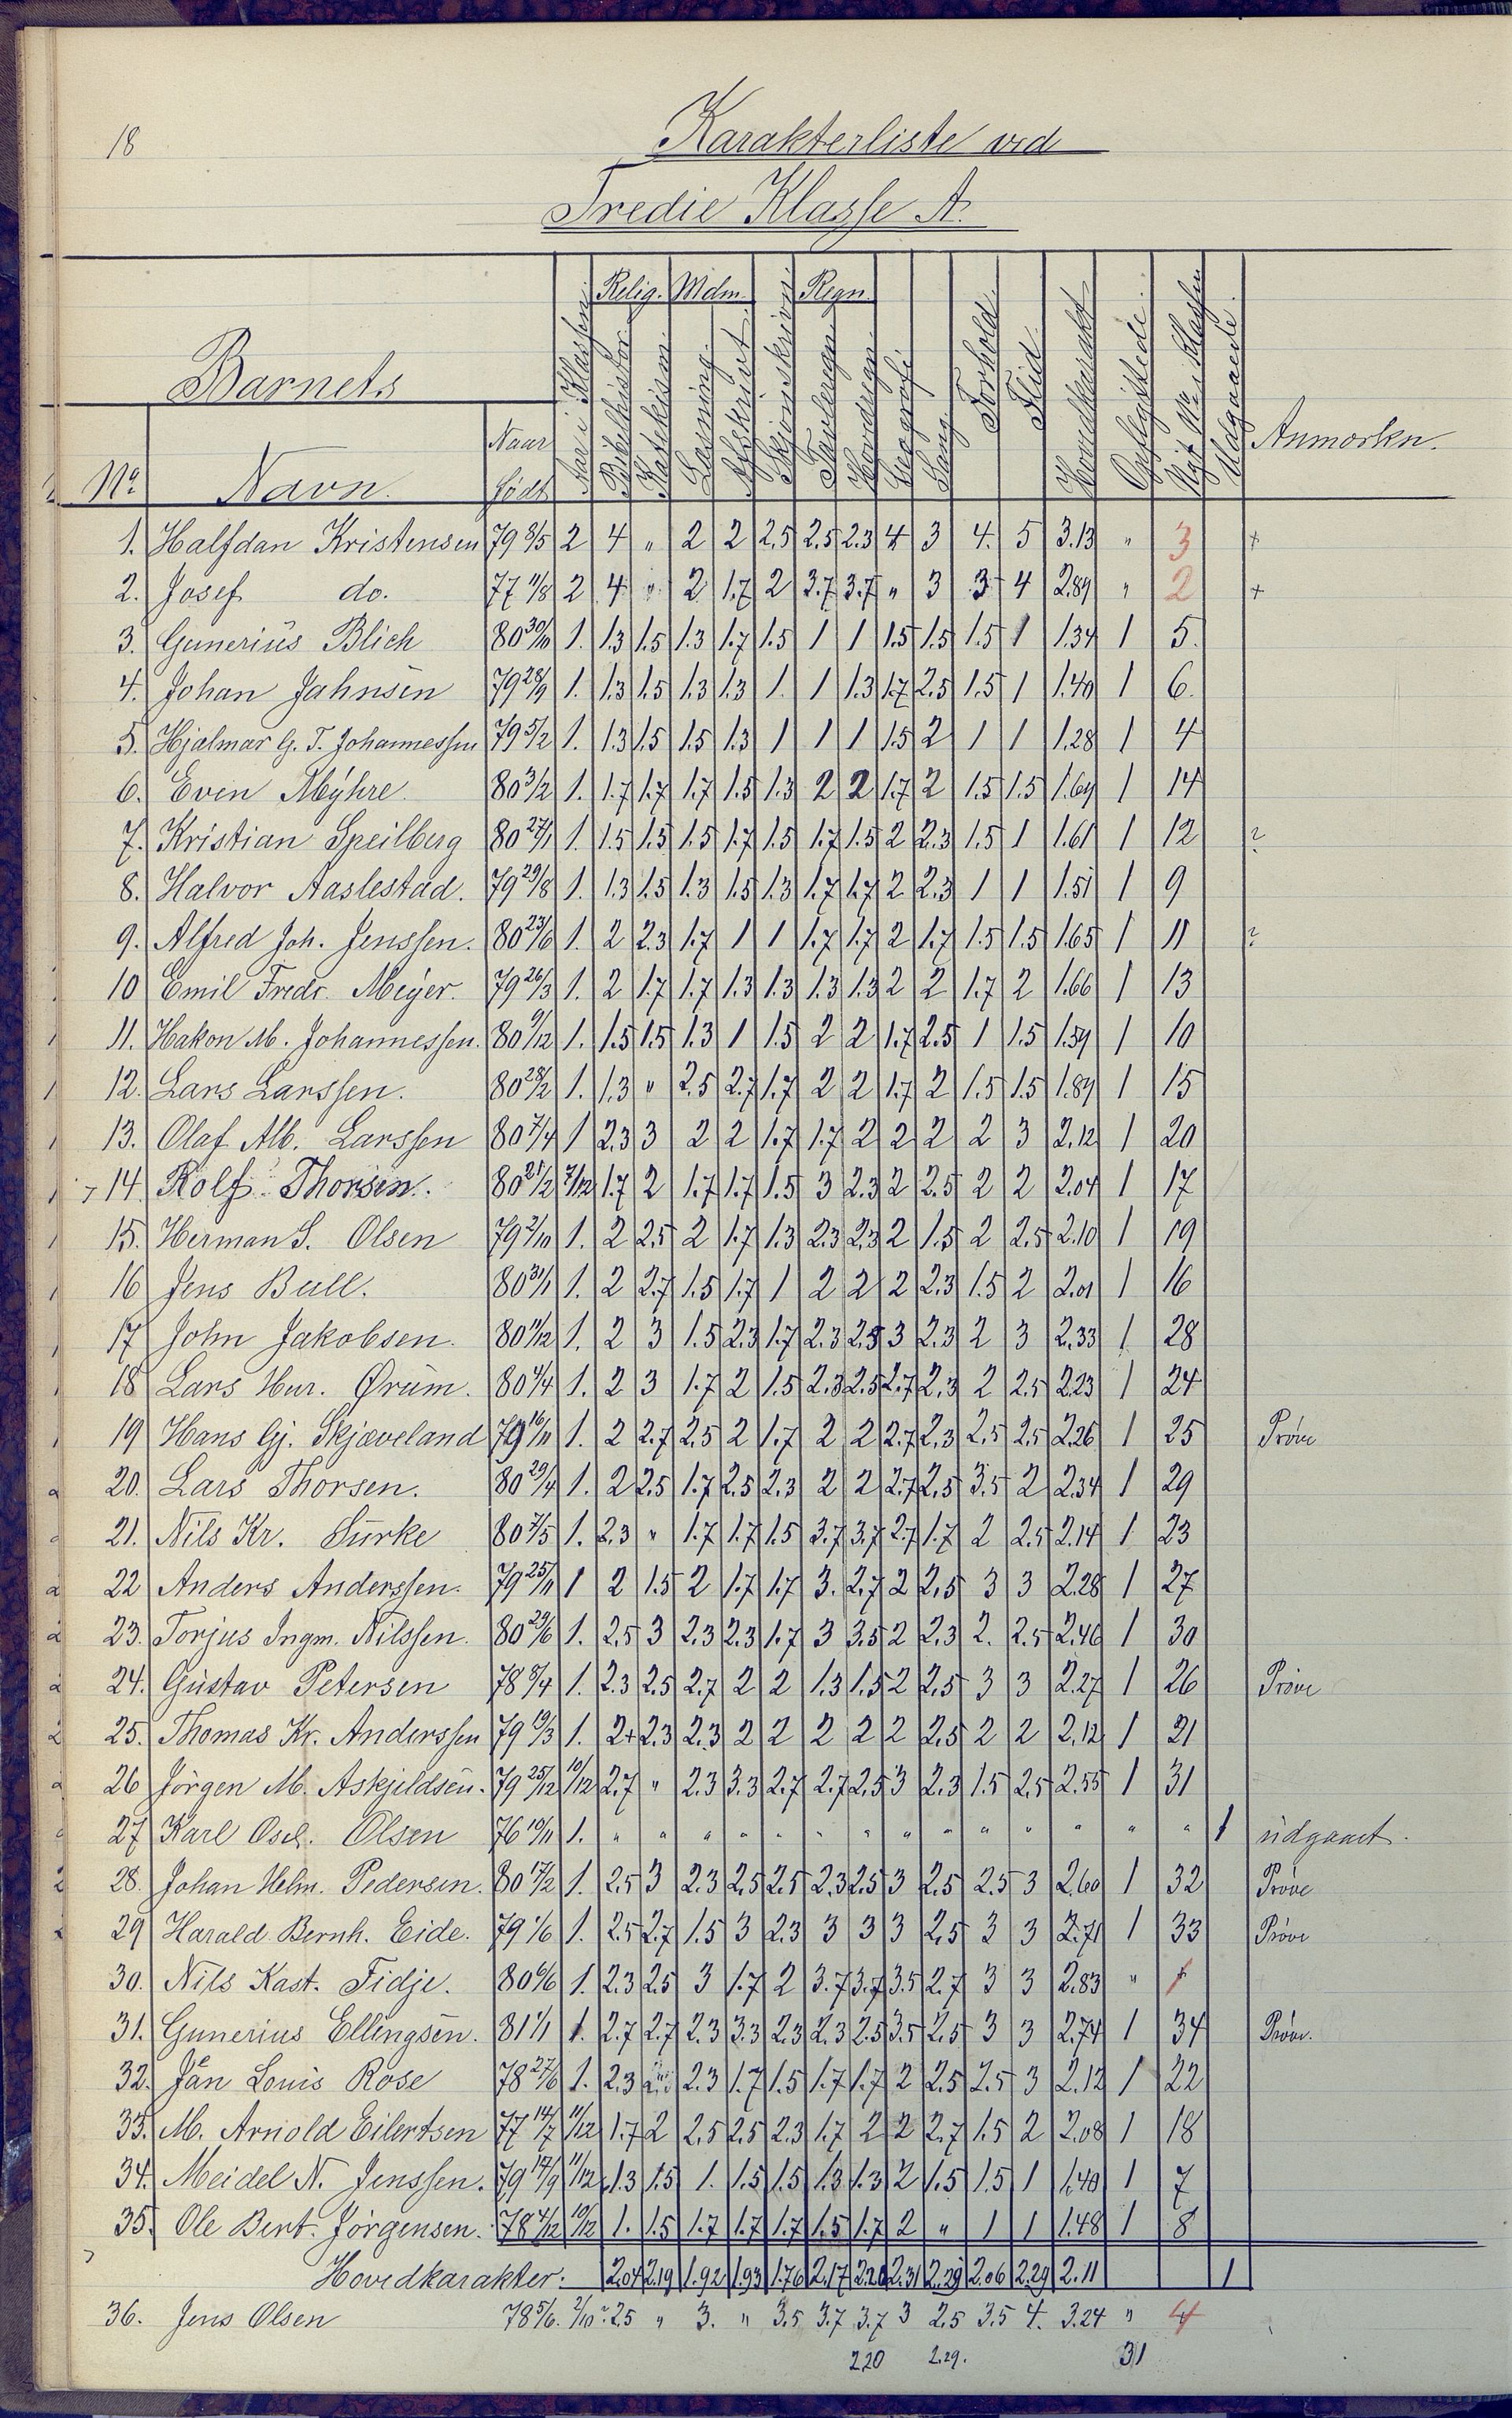 18
Karakterliste ved
Tredie Klasse A.
Relig. Mdm. Regn.
Barnets
No Navn. Naar Født Aar i Klassen Bibelhistor. Katekism. Læsning. Afskrivt. Skjønskrivn. Tavleregn. Hovedregn. Geografi Sang. Forhold. Flid. Hovedkarakt. Opflyttede. Nyt No i Klassen Udgaaede. Anmærkn.
1. Halfdan Kristensen 79 8/5 2 4 " 2 2 2.5 2.5 2.3 4 3 4. 5 3.13 " 3 +
2. Josef do. 77 11/8 2 4 " 2 1.7 2 3.7 3.7 " 3 3 4 2.89 " 2 +
3. Gunerius Blich 80 30/10 1. 1.3 1.5 1.3 1.7 1.5 1 1 1.5 1.5 1.5 1 1.34 1 5.
4. Johan Jahnsen 79 28/9 1. 1.3 1.5 1.3 1.3 1. 1 1.3 1.7 2.5 1.5 1 1.40 1 6.
5. Hjalmar G. T. Johannessen 79 5/2 1. 1.3 1.5 1.5 1.3 1 1 1 1.5 2 1 1 1.28 1 4
6. Even Myhre. 80 3/2 1. 1.7 1.7 1.7 1.5 1.3 2 2 1.7 2 1.5 1.5 1.69 1 14
7. Kristian Speilberg 80 27/1 1. 1.5 1.5 1.5 1.7 1.5 1.7 1.5 2 2.3 1.5 1 1.61 1 12 ?
8. Halvor Aaslestad. 79 29/8 1. 1.3 1.5 1.3 1.5 1.3 1.7 1.7 2 2.3 1 1 1.51 1 9
9. Alfred Joh. Jenssen. 80 23/6 1. 2 2.3 1.7 1 1 1.7 1.7 2 1.7 1.5 1.5 1.65 1 11 ?
10 Emil Fredr. Meyer. 79 26/3 1. 2 1.7 1.7 1.3 1.3 1.3 1.3 2 2 1.7 2 1.66 1 13
11. Hakon M. Johannessen. 80 9/12 1. 1.5 1.5 1.3 1 1.5 2 2 1.7 2.5 1 1.5 1.59 1 10
12. Lars Larssen. 80 28/2 1. 1.3 " 2.5 2.7 1.7 2 2 1.7 2 1.5 1.5 1.89 1 15
13. Olaf Alb. Larssen 80 7/4 1 2.3 3 2 2 1.7 1.7 2 2 2 2 3 2.12 1 20
14. Rolf Thorsen. 80 21/2 7/12 1.7 2 1.7 1.7 1.5 3 2.3 2 2.5 2 2 2.04 1 17
15. Herman S. Olsen 79 2/10 1. 2 2.5 2 1.7 1.3 2.3 2.3 2 1.5 2 2.5 2.10 1 19
16 Jens Bull. 80 31/1 1. 2 2.7 1.5 1.7 1 2 2 2 2.3 1.5 2 2.01 1 16
17 John Jakobsen. 80 11/12 1. 2 3 1.5 2.3 1.7 2.3 2.3 3 2.3 2 3 2.33 1 28
18 Lars Hur. Ørum. 80 4/4 1. 2 3 1.7 2 1.5 2.3 2.5 2.7 2.3 2 2.5 2.23 1 24
19 Hans Gj. Skjæveland 79 16/11 1. 2 2.7 2.5 2 1.7 2 2 2.7 2.3 2.5 2.5 2.26 1 25 Prøve
20. Lars Thorsen. 80 29/4 1. 2 2.5 1.7 2.5 2.3 2 2 2.7 2.5 3.5 2 2.34 1 29
21. Nils Kr. Surke 80 7/5 1. 2.3 " 1.7 1.7 1.5 3.7 3.7 2.7 1.7 2 2.5 2.14 1 23
22 Anders Anderssen. 79 25/11 1 2 1.5 2 1.7 1.7 3. 2.7 2 2.5 3 3 2.28 1 27
23. Torjus Ingm. Nilssen. 80 29/6 1. 2.5 3 2.3 2.3 1.7 3 3.5 2 2.3 2. 2.5 2.46 1 30
24. Gustav Petersen 78 8/4 1. 2.3 2.5 2.7 2 2 1.3 1.5 2 2.5 3 3 2.27 1 26 Prøve
25. Thomas Kr. Anderssen 79 19/3 1. 2+ 2.3 2.3 2 2 2 2 2 2.5 2 2 2.12 1 21
26 Jørgen M. Askjeldsen. 79 25/12 10/12 2.7 " 2.3 3.3 2.7 2.7 2.5 3 2.3 1.5 2.5 2.55 1 31
27 Karl Osc. Olsen 76 19/11 1. " " " " " " " " " " " " " " 1 udgaaet.
28. Johan Helm. Pedersen. 80 17/2 1. 2.5 3 2.3 2.5 2.5 2.3 2.5 3 2.5 2.5 3 2.60 1 32 Prøve
29 Harald Bernh. Eide. 79 1/6 1. 2.5 2.7 1.5 3 2.3 3 3 3 2.5 3 3 2.71 1 33 Prøve
30. Nils Kast. Fidje. 80 6/6 1. 2.3 2.5 3 1.7 2 3.7 3.7 3.5 2.7 3 3 2.83 " 1
31. Gunerius Ellingsen. 81 1/1 1. 2.7 2.7 2.3 3.3 2.3 2.3 2.5 3.5 2.5 3 3 2.74 1 34 Prøve.
32. Jan Louis Rose 78 27/6 1. 2.3 2.3 1.7 1.5 1.7 1.7 2 2.5 2.5 3 2.12 1 22
33. M. Arnold Eilertsen 77 14/7 11/12 1.7 2 2.5 2.5 2.3 1.7 2 2 2.7 1.5 2 2.08 1 18
34. Meidel N. Jenssen. 79 17/9 11/12 1.3 1.5 1. 1.5 1.5 1.3 1.3 2 1.5 1.5 1 1.40 1 7
35. Ole Bert. Jörgensen. 78 4/12 10/12 1. 1.5 1.7 1.7 1.7 1.5 1.7 2 " 1 1 1.48 1 8
Hovedkarakter. 2.04 2.19 1.92 1.93 1.76 2.17 2.20 2.31 2.29 2.06 2.29 2.11 1
36. Jens Olsen 78 5/6. 2/10 2.5 " 3. " 3.5 3.7 3.7 3 2.5 3.5 4. 3.24 " 4
2.20 2.29. 31